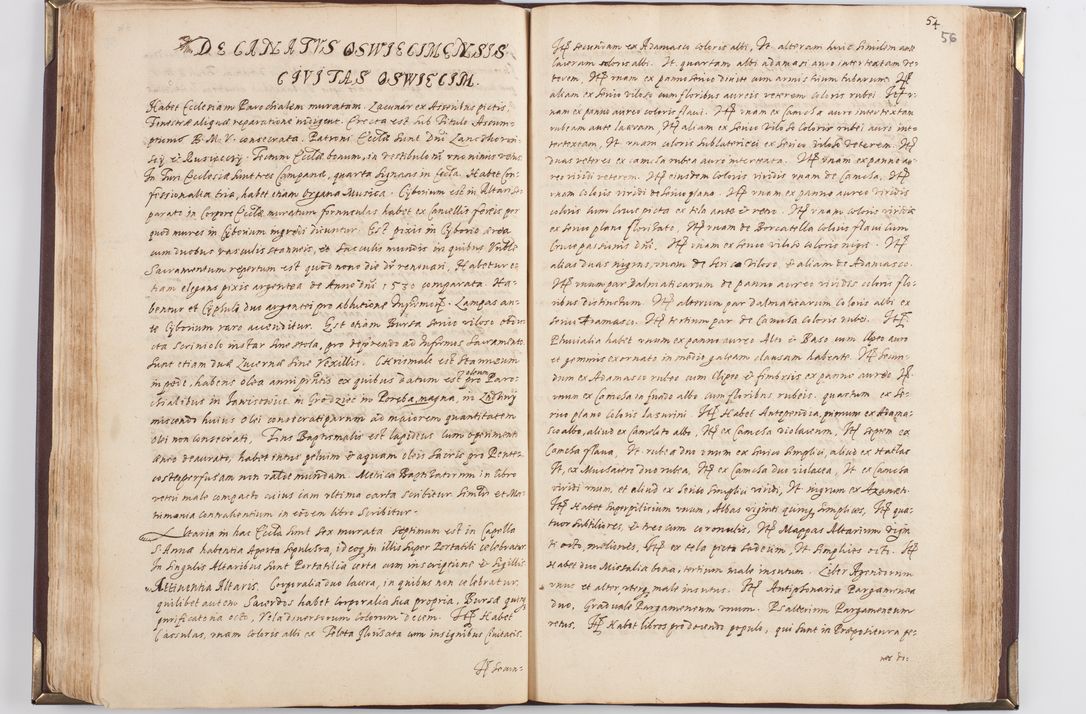 DECANATVS OSWIECIMENSIS
CIVITAS OSWIECIM.
Habet Ecclesiam Parochialem muratam. Lacunar ex Asseribus pictis,
Fenestræ aliquæ reparatione indigent. Erecta est sub titulo Assum-
ptionis B. M. V. consecrata. Patroni Eccłæ sunt Dni
Tectum Eccłæ bonum, in vestibulo
In Turri Ecclesiæ sunt tres Campanæ, quarta signans in Eccła. Habet Con-
fessionalia tria, habet etiam Organa Musica. Cyborium est in Altari
parato in Corpore Eccłæ muratum fornículas habet ex Cancellis foreis per
quod mures in Cyborium ingredi dicuntur. Est pixis in Cyborio ærea
cum duobus vasculis stanneis, et sacculis mundis in quibus Vnble
Sacramentum repertum est quod nono die dr renovari, Habetur e-
tiam elegans pixis argentea de Anno dni 1530 comparata. Ha-
bentur et Cyphuli duo argentei pro ablutione Infirmorum. Lampas an-
te Cyborium raro accenditur. Est etiam Bursa serico viloso obdu-
cta scriniolo instar sine stola, pro deferendo ad Infirmos Sacramento
Sunt etiam duæ Lucernæ sine Vexillis. Chrismale est stanneum
in pede, habens olea anni præntis ex quibus datum est oleum pro Paro-
chialibus in Janisowice in Grodziec in Poreba magna, in
miscendo huius olei consecrati parum ad maiorem quantitatem
olei non consecrati, Fons Baptismalis est lapideus cum operimento
æneo deaurato, habet intus pelvim et aquam oleis sacris pro Pente-
coste perfusam non valde mundam. Metrica Baptizatorum in libro
veteri male compacto cuius iam ultima carta scribitur similiter et Ma-
trimonia contrahentium in eodem libro scribitur.
Altaria in hac Eccła sunt sex murata septimum est in Capella
S. Annæ habentia aperta sepulchra, ideoque in illis super Portatili celebratur
In singulis Altaribus sunt Portatilia certa cum inscriptione et sigillis
Attinentia Altaris. Corporalia duo lacera, in quibus non celebratur
quilibet autem Sacerdos habet Corporalia sua propria, Bursæ quinque
purificatoria octo, Vela diversorum colorum decem. Itē Habet
Casulas, unam coloris albi ex Telota cum insignibus Civitatis.
Itē secun-
54
56
Itē secundam ex Adamasco coloris albi, It alteram huic similem ante
laceram coloris albi. It quartam albi adamasci auro intertextam ve-
terem. Itē unam ex panno serico cum armis trium tubarum. Itē
aliam ex serico viloso cum floribus aureis veterem coloris rubei. Itē v-
nam ex panno aureo coloris flavi. Itē unam ex Camcha auro intertextam
rubeam ante laceram, Itē aliam ex serico viloso coloris rubei auro inter-
tertextam, It unam coloris sublateritei ex serico veterem. Itē
duas veteres ex camcha rubea auro intertexta. Itē unam ex panno au-
reo viridi veterem. Itē eiusdem coloris viridis unam de Camcha, Itē
unam coloris viridi de serico plano. Itē unam ex panno aureo viridis
coloris cum cruce picta ex tela ante et retro. Itē unam coloris viridis
ex serico plano floritato, Itē unam de Borcatella coloris flavi cum
Cruce passionis dni. Itē unam ex serico viloso coloris nigri. Itē
alias duas nigras, unam de serico viloso, et aliam de Adamasco.
Itē unum par Dalmaticarum de panno aureo viridis coloris flo-
ribus distinctum. Itē alterum par Dalmaticarum coloris albi ex
serico Adamasci. Itē tertium par de Camcha coloris rubei. Itē
Pluvialia habet unum ex panno aureo Alto et Baso cum clipeo auro
et gemmis exornato in medio galeam clausam habente. Itē secun-
dum ex Adamasco rubeo cum clipeo et fimbriis ex panno aureo. Itē
unum ex Camcha in fundo albo cum floribus rubeis. quartum ex se-
rico plano coloris lasurini. Itē Habet Antependia, primum ex Adama-
sco albo, aliud ex Cameloto albo, Itē ex Camcha violaceum, Itē septem ex
Camcha flava, It rubea duo unum ex serico simplici, aliud ex Hatlas
It, ex Muchaiero duo rubea, It ex Camcha duo violacea, It ex Camcha
viridi unum, et aliud ex serico simplici viridi, It nigrum ex
Itē Habet superpelliceum unum, Albas viginti quinque simplices, Itē qua-
tuor subtiliores, et tres cum coronulis, Itē Mappas Altarium vigin-
ti octo, meliores, Itē ex tela picta sedecim, It simplices octo. Itē
Habet duo Missalia bona, tertium male insutum. Liber Agendorum
unus et alter uterque male insutus. Itē Antiphonaria Pargamenea
duo, Graduale Pargameneum unum. Psalterium Pargameneum
vetus. Itē Habet libros pro docendo populo, qui sunt in Præpositura pe-
nes